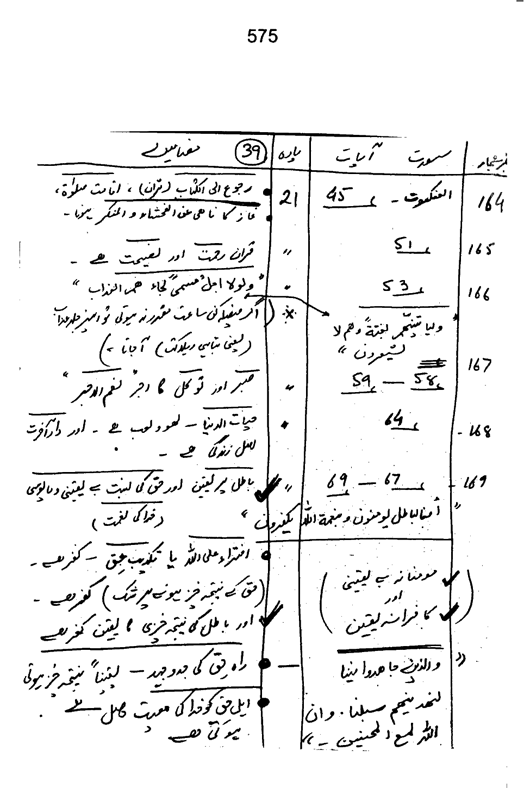 575
نمبر شمار سورت آیات پارہ (39) مضامین
164 العنکبوت - 45 21 رجوع الی الکتاب (قرآن)، اقامت صلوٰة،
نماز کا ناھی عن الفحشاء و المنکر ہونا -
165 51 " قرآن رحمت اور نصیحت ہے -
166 53 " "ولولا اجل مسمی لجاء ھم العذاب"
"ولیاتینھم بغتة وھم لا یشعرون"
(اگر فیصلہ کی ساعت مقرر نہ ہوتی تو ان پر جلد عذاب
(یعنی تباہی و ہلاکت) آجاتا -)
167 58 - 59 " صبر اور توکل کا اجر "نعم الاجر"
168 - 64 " حیات الدنیا - لھو و لعب ہے - اور دار آخرت
اصل زندگی ہے -
169 - 67 - 69 " باطل پر یقین اور حق کی نسبت بے یقینی و مایوسی
"أفبالباطل یومنون و بنعمة اللہ یکفرون" (خدا کی نعمت)
افتراء علی اللہ یا تکذیب حق - کفر ہے -
(مومنانہ بے یقینی
اور
کافرانہ یقین)
(حق کے نتیجہ خیز ہونے پر شک) کفر ہے -
اور باطل کی نتیجہ خیزی کا یقین کفر ہے
" والذین جاھدوا فینا
لنھدینھم سبلنا. وان
اللہ لمع المحسنین -"
راہ حق کی جدوجہد - یقیناً نتیجہ خیز ہوتی
اہل حق کو خدا کی معیت حاصل ہے
ہوتی ہے